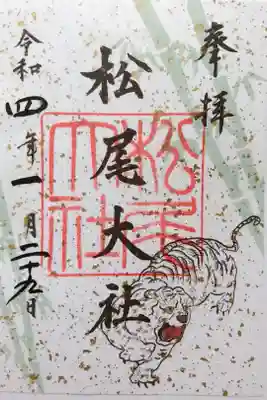 奉拝
松尾大社
令和四年一月二十九日
松尾大社